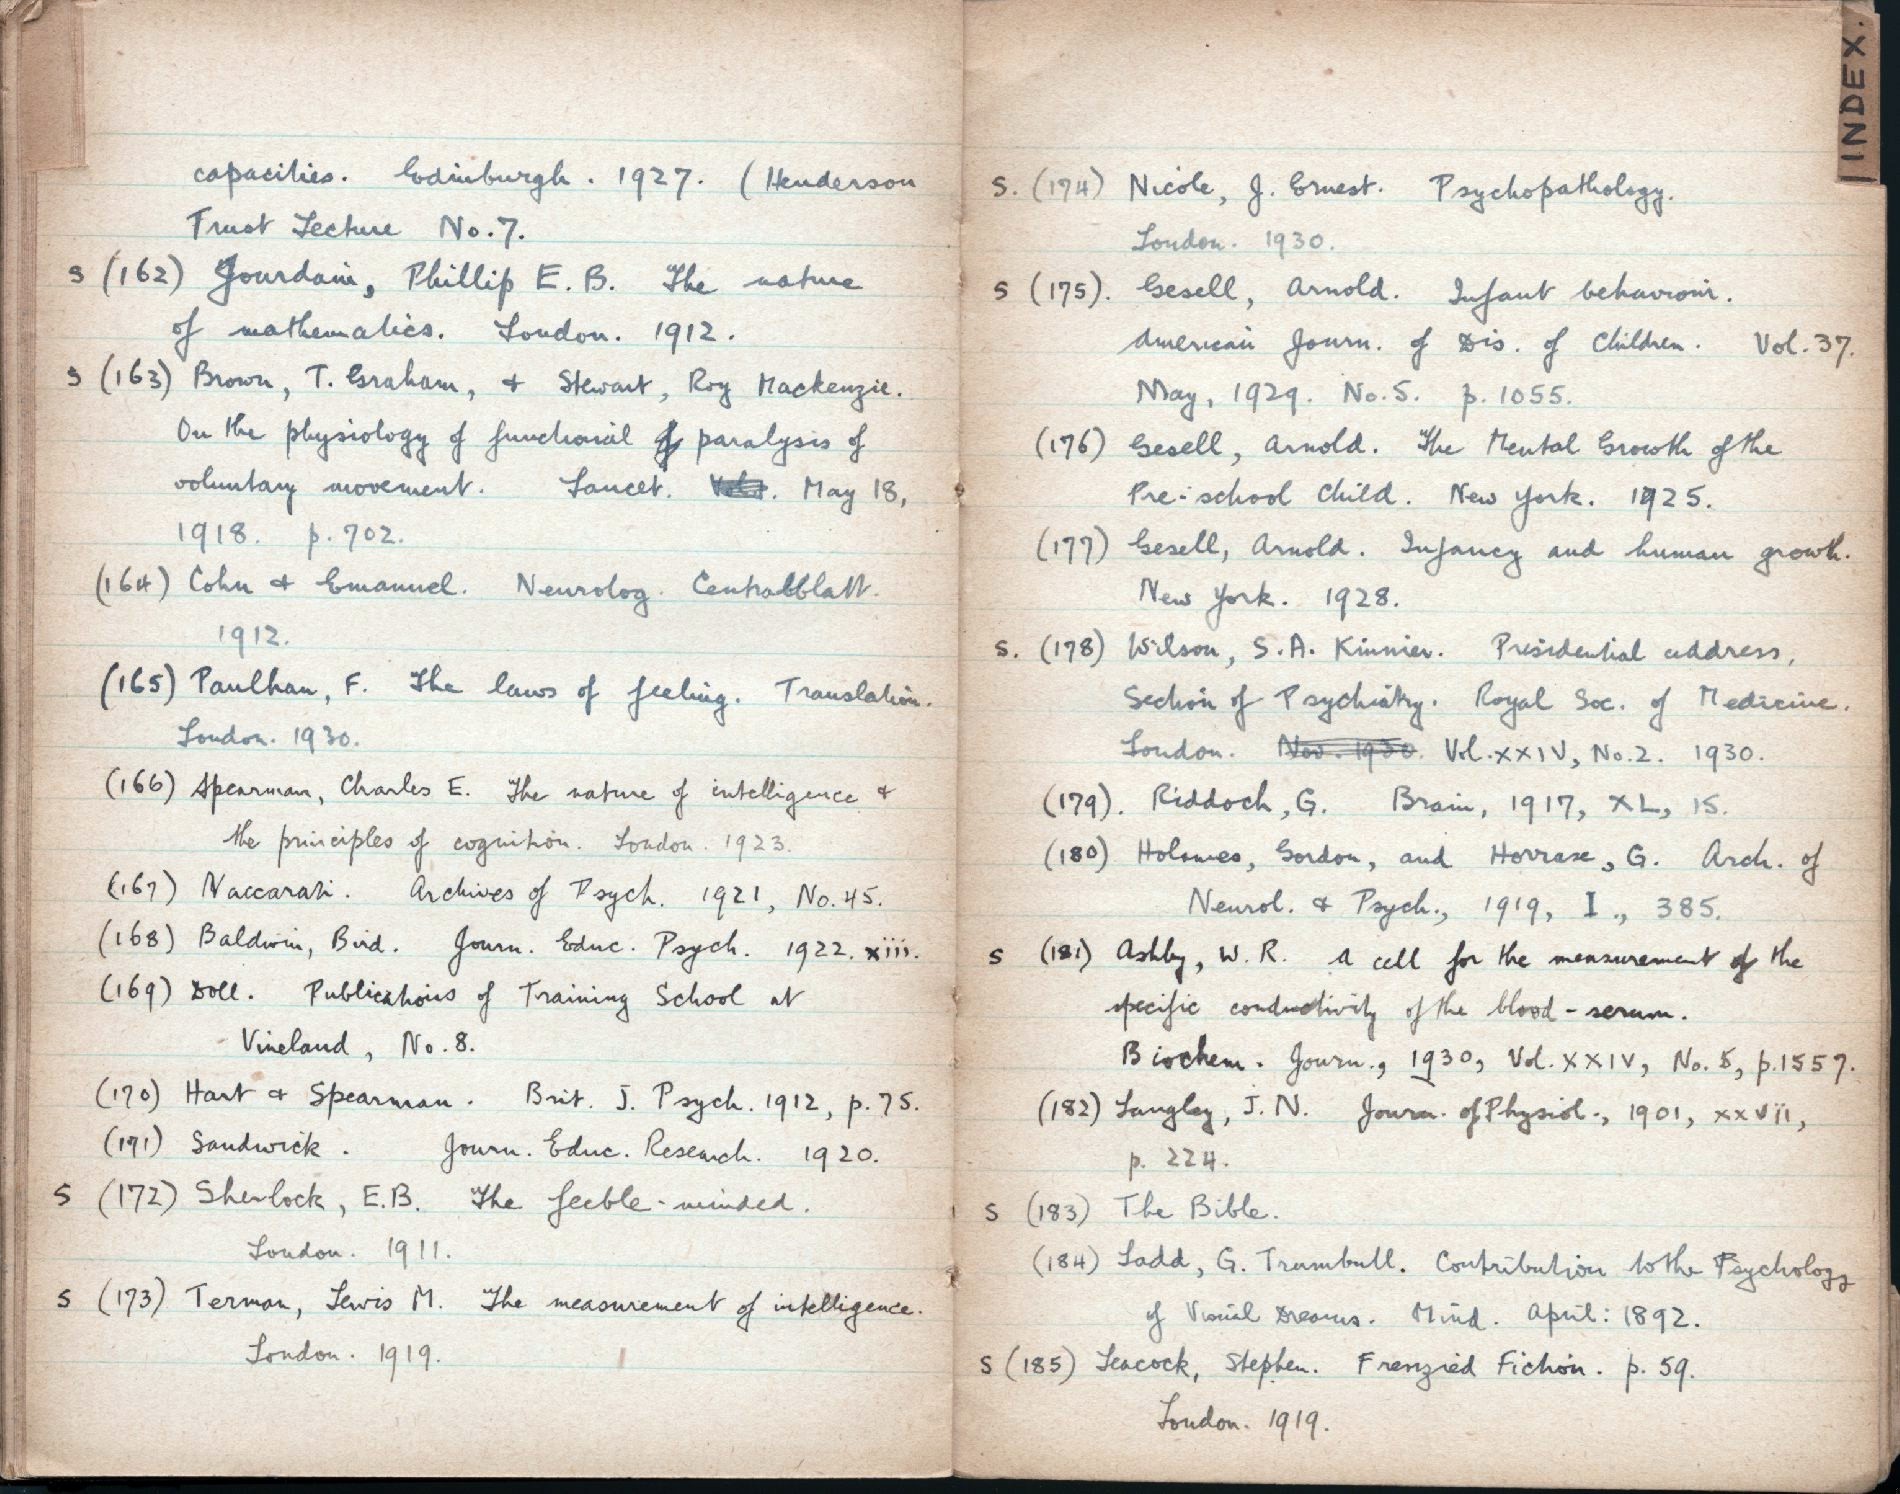 capacities. Edinburgh. 1927. (Henderson
Trust Lecture No. 7.
S (162) Jourdain, Phillip E. B. The nature
of mathematics. London. 1912.
S (163) Brown, T. Graham, & Stewart, Roy Mackenzie.
On the physiology of functional paralysis of
voluntary movement. Lancet. May 18,
1918. p. 702.
(164) Cohn & Emanuel. Neurolog. Centralblatt.
1912.
(165) Paulhan, F. The laws of feeling. Translation.
London. 1930.
(166) Spearman, Charles E. The nature of intelligence &
the principles of cognition. London. 1923.
(167) Naccarati. Archives of Psych. 1921, No. 45.
(168) Baldwin, Bird. Journ. Educ. Psych. 1922. xiii.
(169) Doll. Publications of Training School at
Vineland, No. 8.
(170) Hart & Spearman. Brit. J. Psych. 1912, p. 75.
(171) Sandwick. Journ. Educ. Research. 1920.
S (172) Sherlock, E.B. The feeble-minded.
London. 1911.
S (173) Terman, Lewis M. The measurement of intelligence.
London. 1919.
INDEX.
S. (174) Nicole, J. Ernest. Psychopathology.
London. 1930.
S (175). Gesell, Arnold. Infant behaviour.
American Journ. of Dis. of Children. Vol. 37.
May, 1929. No. 5. p. 1055.
(176) Gesell, Arnold. The Mental Growth of the
Pre-school Child. New York. 1925.
(177) Gesell, Arnold. Infancy and human growth.
New York. 1928.
S. (178) Wilson, S.A. Kinnier. Presidential address,
Section of Psychiatry. Royal Soc. of Medicine.
London. Nov. 1930. Vol. XXIV, No. 2. 1930.
(179). Riddoch, G. Brain, 1917, XL, 15.
(180) Holmes, Gordon, and Horrax, G. Arch. of
Neurol. & Psych., 1919, I., 385.
S (181) Ashby, W. R. A cell for the measurement of the
specific conductivity of the blood-serum.
Biochem. Journ., 1930, Vol. XXIV, No. 5, p. 1557.
(182) Langley, J. N. Journ. of Physiol., 1901, xxvii,
p. 224.
S (183) The Bible.
(184) Ladd, G. Trumbull. Contribution to the Psychology
of Visual Dreams. Mind. April: 1892.
S (185) Leacock, Stephen. Frenzied Fiction. p. 59.
London. 1919.